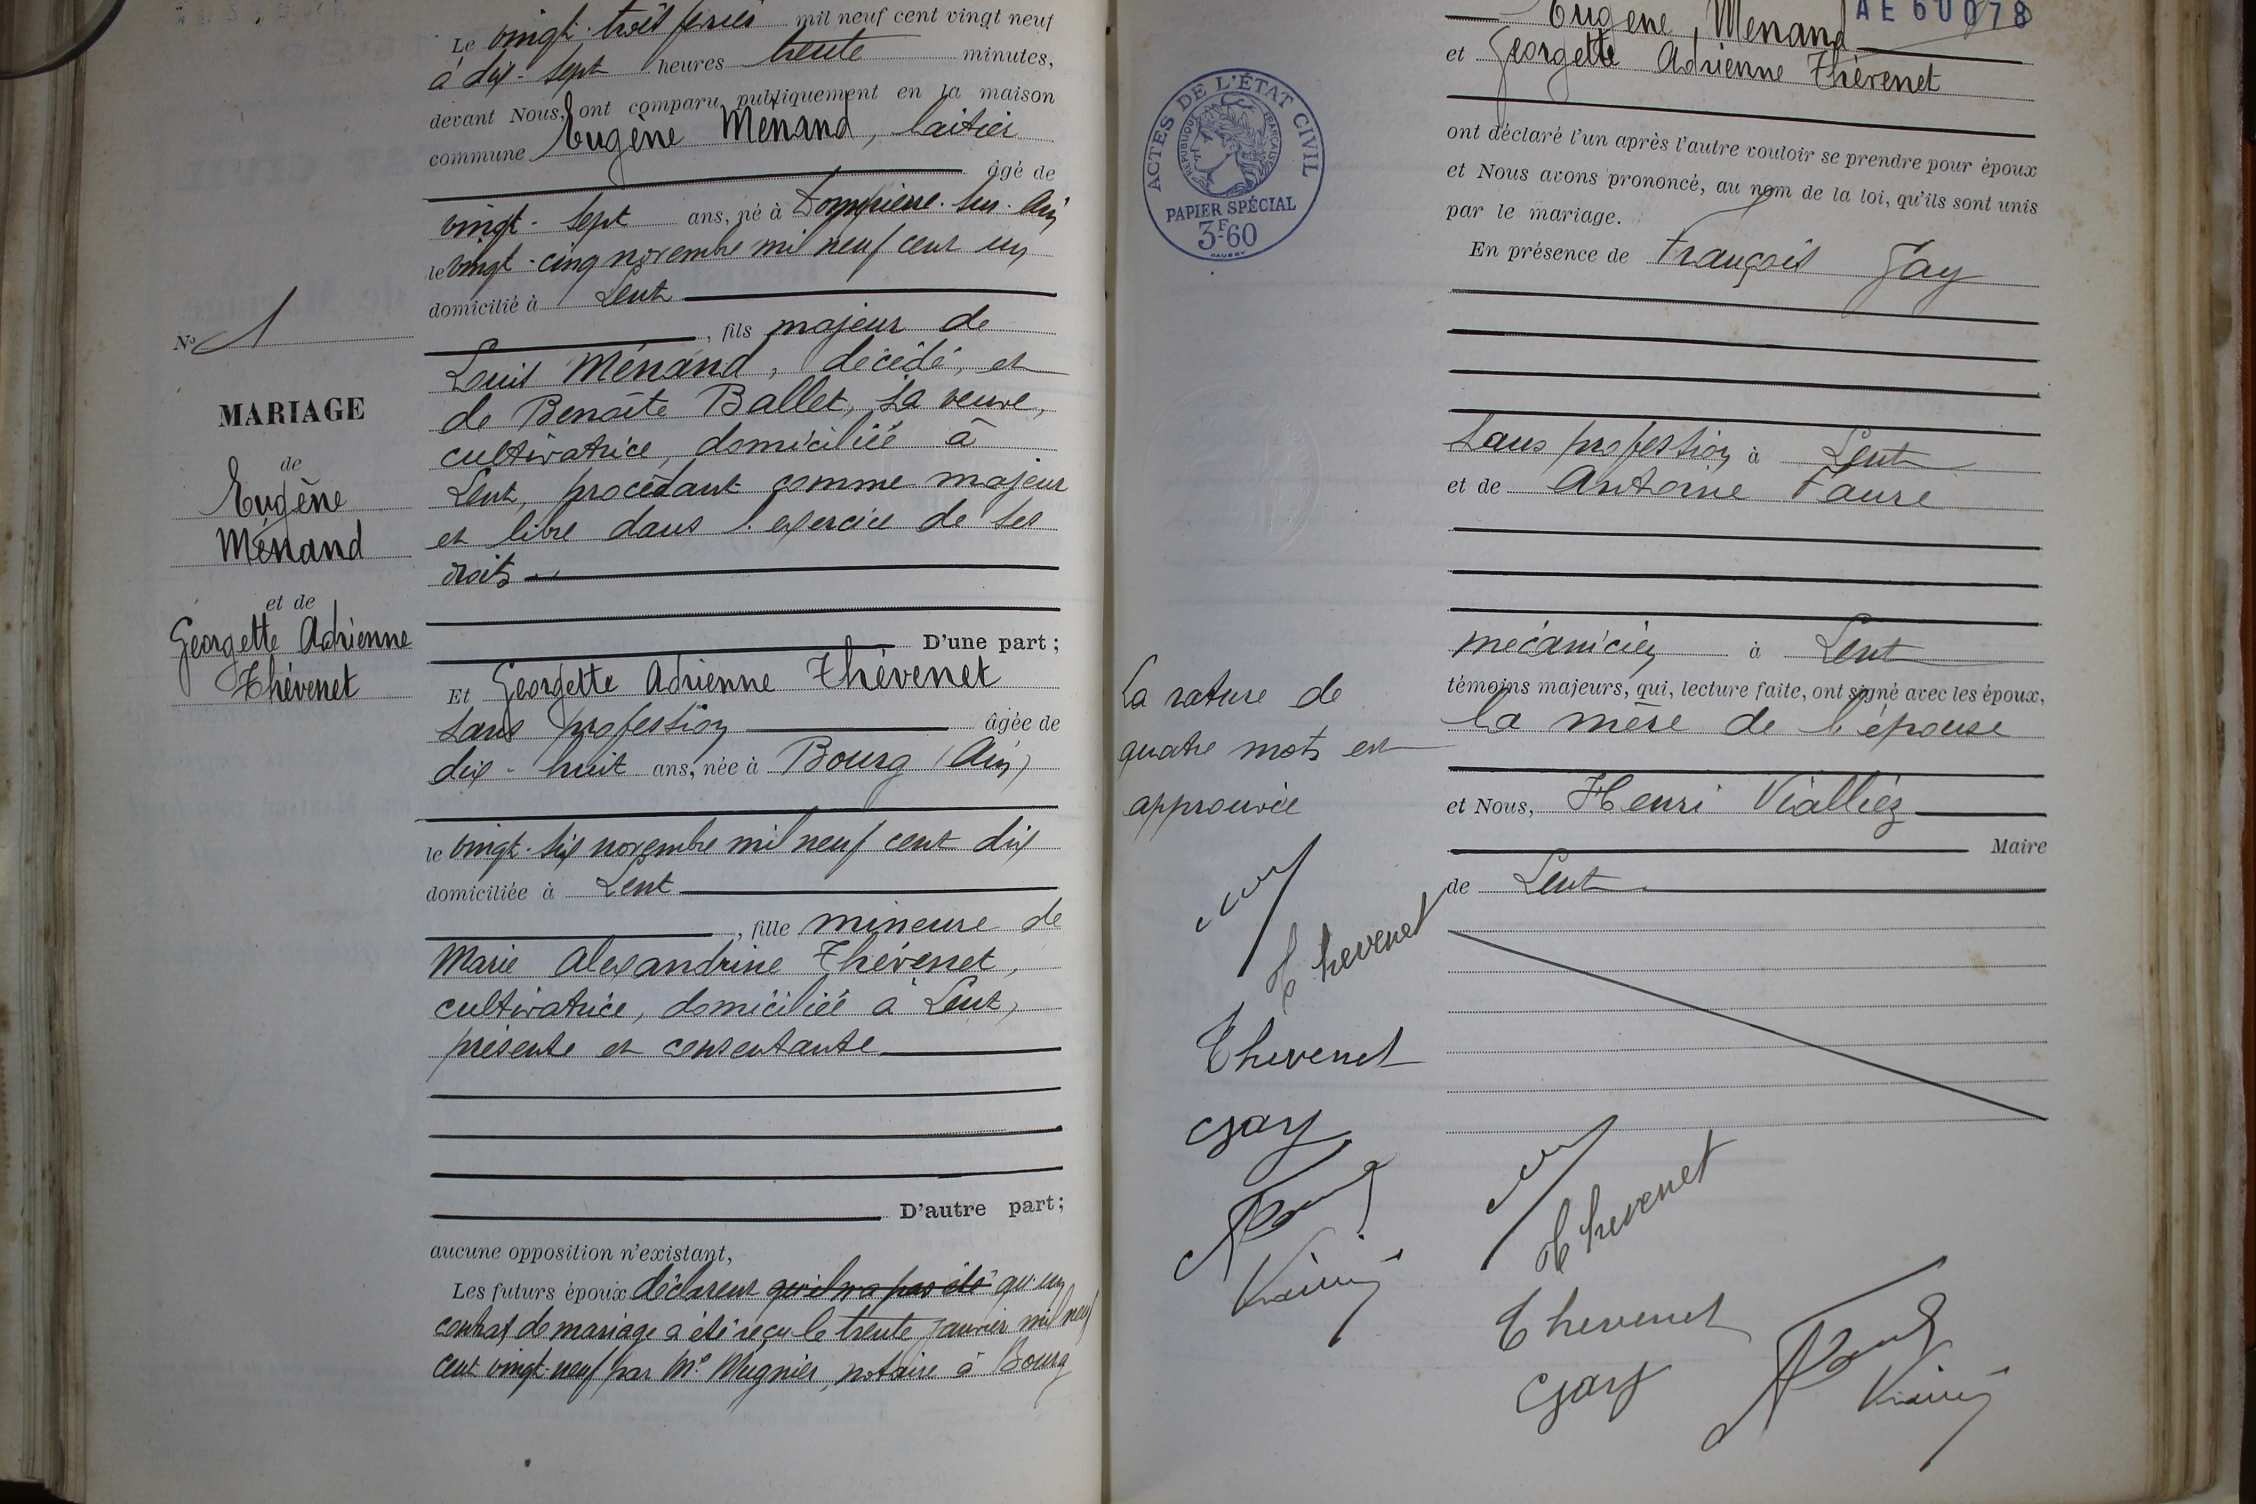 Le vingt-trois février mil neuf cent vingt neuf
à dix-sept heures trente minutes,
devant Nous, ont comparu publiquement en la maison
commune Eugène Ménand, laitier
âgé de
vingt-sept ans, né à Dompierre-sur-Ain
le vingt-cinq novembre mil neuf cent un
domicilié à Lent
, fils majeur de
Louis Ménand, décédé, et
de Benoîte Ballet, sa veuve,
cultivatrice, domiciliée à
Lent, procédant comme majeur
et libre dans l'exercice de ses
droits
D'une part;
Et Georgette Adrienne Thévenet
sans profession âgée de
dix-huit ans, née à Bourg (Ain)
le vingt-six novembre mil neuf cent dix
domiciliée à Lent
, fille mineure de
Marie Alexandrine Thévenet,
cultivatrice, domiciliée à Lent,
présente et consentante
D'autre part;
aucune opposition n'existant,
Les futurs époux déclarent qu'il n'a pas été qu'un
contrat de mariage a été reçu le trente janvier mil neuf
cent vingt-neuf par Me Mugnier, notaire à Bourg
No 1
MARIAGE
de
Eugène
Ménand
et de
Georgette Adrienne
Thévenet
AE 60078
Eugène Ménand
et Georgette Adrienne Thévenet
ont déclaré l'un après l'autre vouloir se prendre pour époux
et Nous avons prononcé, au nom de la loi, qu'ils sont unis
par le mariage.
En présence de François Gay
sans profession à Lent
et de Antoine Faure
mécanicien à Lent
témoins majeurs, qui, lecture faite, ont signé avec les époux,
la mère de l'épouse
et Nous, Henri Vialliez
Maire
de Lent
ACTES DE L'ÉTAT CIVIL
RÉPUBLIQUE FRANÇAISE
PAPIER SPÉCIAL
3F60
La rature de
quatre mots est
approuvée
Thevenet
Thevenet
Gay
Thevenet
Thevenet
Gay